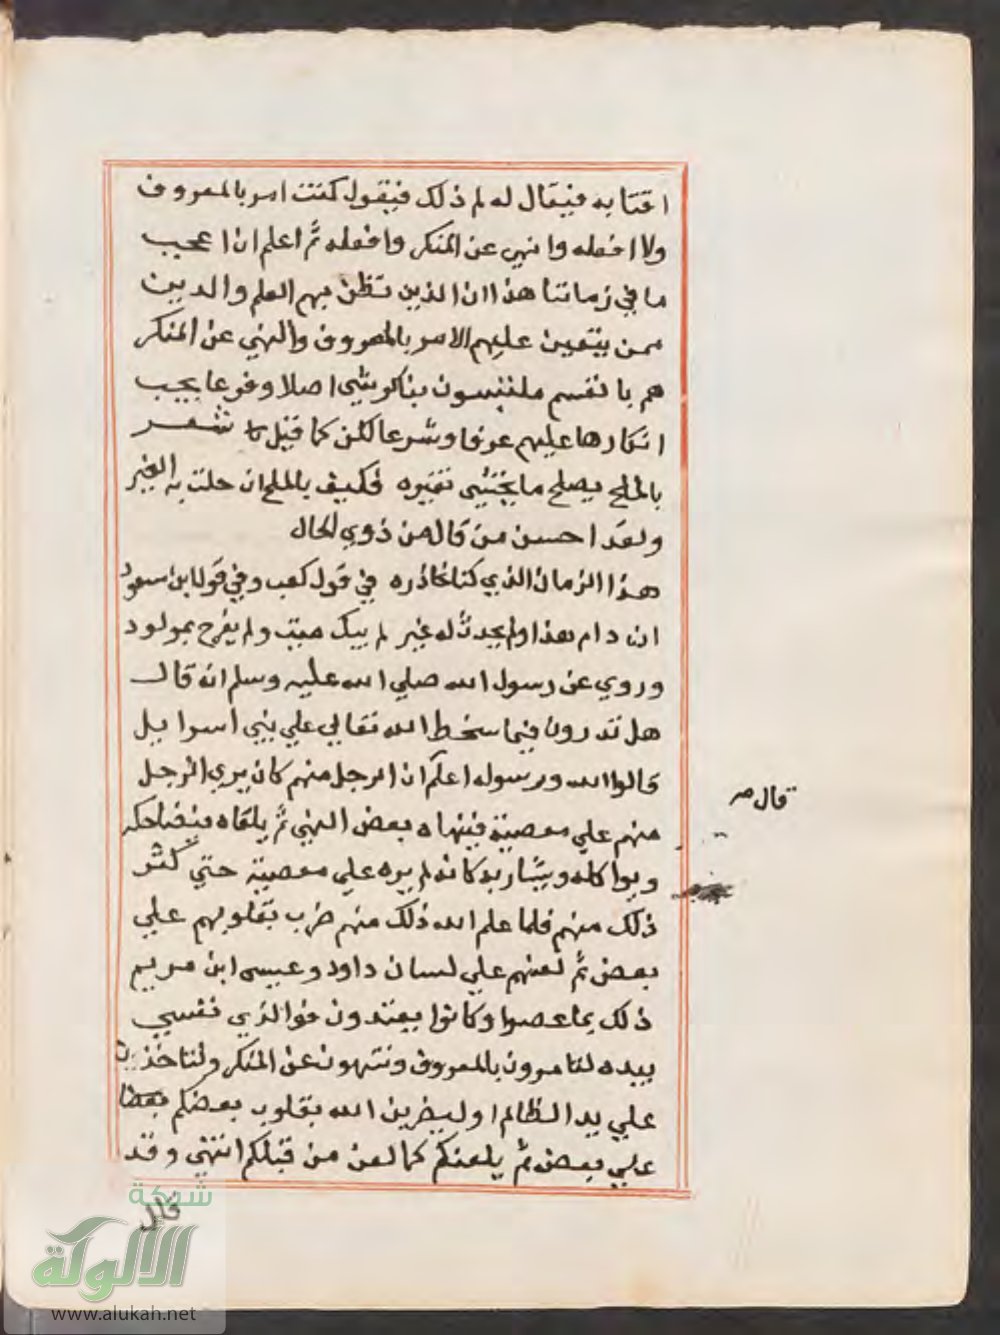 اقتابه فيقال له لم ذلك فيقول كنت امر بالمعروف
ولا افعله وانهي عن المنكر وافعله ثم اعلم ان اعجب
ما في زماننا هذا ان الذين تظن بهم العلم والدين
ممن يتعين عليهم الامر بالمعروف والنهي عن المنكر
هم بانفسهم ملتبسون بمناكر شتى اصلا وفرعا يجب
انكارها عليهم عرفا وشرعا لكن كما قيل شعر
بالملح يصلح ما يختشى تغيره فكيف بالملح ان حلت به الغير
ولقد احسن من قال من ذوي الحال
هذا الزمان الذي كنا نحاذره في قول كعب وفي قول ابن مسعود
ان دام هذا ولم يحدث له غير لم يبك ميت ولم يفرح بمولود
وروي عن رسول الله صلي الله عليه وسلم انه قال
هل تدرون فيما سخط الله تعالي علي بني اسرايل
قالوا الله ورسوله اعلم ان الرجل منهم كان يري الرجل
قال صر
منهم علي معصية فينهاه بعض النهي ثم يلقاه فيضاحكه
ويواكله ويشاربه كانه لم يره علي معصية حتي كثر
ذلك منهم فلما علم الله ذلك منهم ضرب بقلوبهم علي
بعض ثم لعنهم علي لسان داود وعيسى ابن مريم
ذلك بما عصوا وكانوا يعتدون فوالذي نفسي
بيده لتامرون بالمعروف وتنتهون عن المنكر ولتاخذن
علي يد الظالم او ليضربن الله بقلوب بعضكم بعضا
علي بعض ثم يلعنكم كما لعن من قبلكم انتهي وقد
قال
شبكة
الألوكة
www.alukah.net